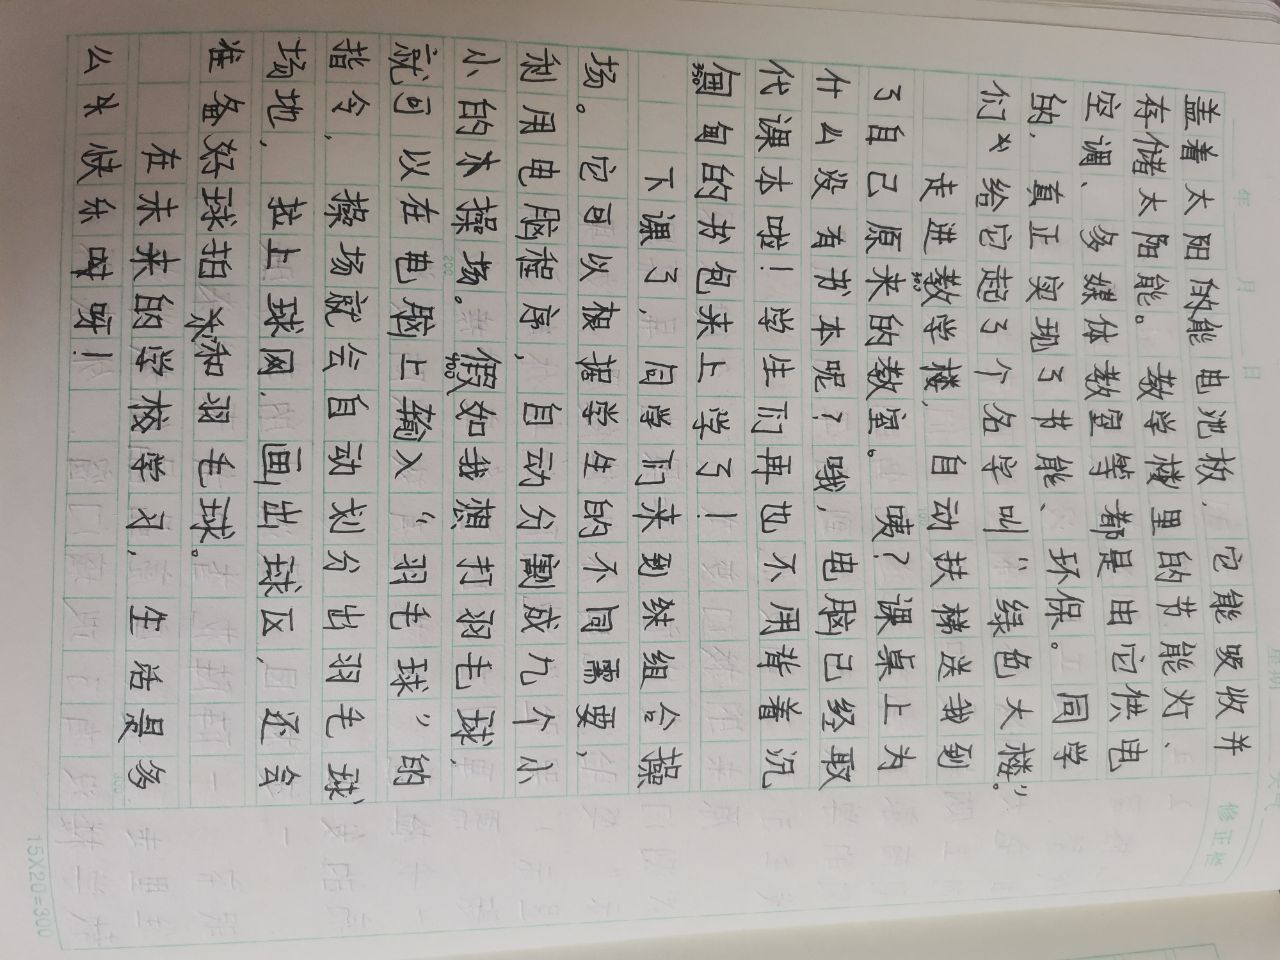 年 月 日
盖着太阳能电池板,它能吸收并
存储太阳能。教学楼里的节能灯、
空调、多媒体教室等都是由它供电
的,真正实现了节能、环保。同学
们给它起了个名字叫“绿色大楼”。
走进教学楼,自动扶梯送我到
了自己原来的教室。咦?课桌上为
什么没有书本呢?哦,电脑已经取
代课本啦!学生们再也不用背着沉
甸甸的书包来上学了!
350
下课了,同学们来到综组合操
场。它可以根据学生的不同需要,
利用电脑程序,自动分割成九个小
小的操场。假如我想打羽毛球,
200
400
就可以在电脑上输入“羽毛球”的
指令,操场就会自动划分出羽毛球
场地,拉上球网,画出球区,还会
准备好球拍和羽毛球。
在未来的学校学习,生活是多
么快乐呀!
300
修正栏
15X20=300